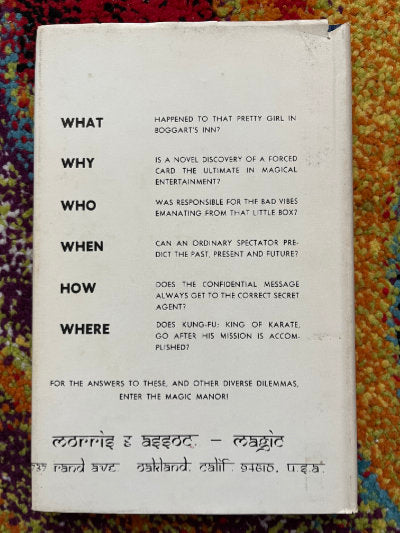 WHAT HAPPENED TO THAT PRETTY GIRL IN
BOGGART'S INN?
WHY IS A NOVEL DISCOVERY OF A FORCED
CARD THE ULTIMATE IN MAGICAL
ENTERTAINMENT?
WHO WAS RESPONSIBLE FOR THE BAD VIBES
EMANATING FROM THAT LITTLE BOX?
WHEN CAN AN ORDINARY SPECTATOR PRE-
DICT THE PAST, PRESENT AND FUTURE?
HOW DOES THE CONFIDENTIAL MESSAGE
ALWAYS GET TO THE CORRECT SECRET
AGENT?
WHERE DOES KUNG-FU: KING OF KARATE,
GO AFTER HIS MISSION IS ACCOM-
PLISHED?
FOR THE ANSWERS TO THESE, AND OTHER DIVERSE DILEMMAS,
ENTER THE MAGIC MANOR!
morris & assoc. – magic
rand ave. oakland, calif. 94610, u.s.a.